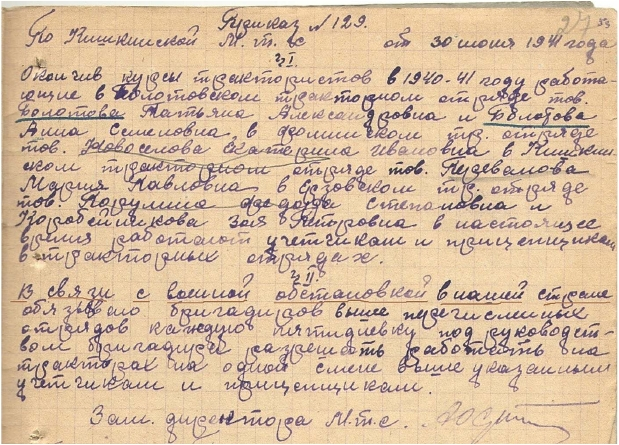 27 53
Приказ № 129.
По Кишкинской М.т.с от 30 июня 1941 года
§ I.
Окончив курсы трактористов в 1940-41 году работа-
ющие в Болотовском тракторном отряде тов.
Болотова Татьяна Александровна и
Анна Семеновна, в тр. отряде
тов. Новоселова Екатерина Ивановна в Кишкин-
ском тракторном отряде тов.
Мария Павловна в Ерзовском тр. отряде
тов. Степановна и
Коробейникова Зоя Петровна в настоящее
время работают учетчикам и прицепщикам
в тракторных отрядах.
§ II.
В связи с военной обстановкой в нашей стране
обязываю бригадиров выше перечисленых
отрядов каждую пятидневку под руководст-
вом бригадира разрешать работать на
тракторах на одной смене выше указанным
учетчикам и прицепщикам.
Зам. директора М.т.с.